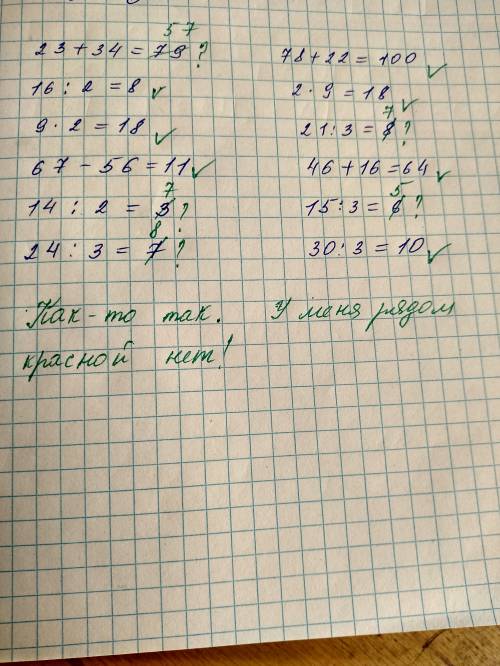 57
23 + 34 = 79 ?
16 : 2 = 8 ✓
9 · 2 = 18 ✓
67 - 56 = 11 ✓
7
14 : 2 = 3 ?
8
24 : 3 = 7 ?
78 + 22 = 100 ✓
2 · 9 = 18 ✓
7
21 : 3 = 8 ?
46 + 16 = 64 ✓
5
15 : 3 = 6 ?
30 : 3 = 10 ✓
Как-то так. У меня рядом
красной нет!